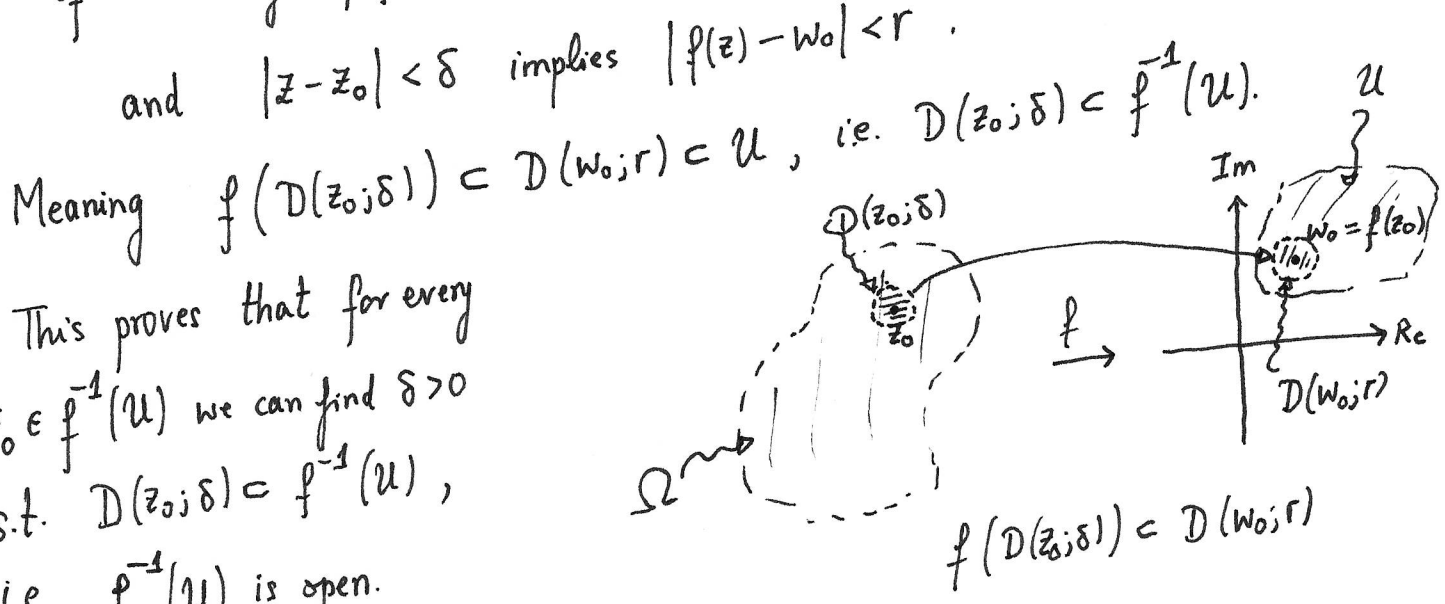 and |z-z₀| < δ implies |f(z)-w₀| < r .
Meaning f(D(z₀;δ)) ⊂ D(w₀;r) ⊂ U , i.e. D(z₀;δ) ⊂ f⁻¹(U).
This proves that for every
z₀ ∈ f⁻¹(U) we can find δ>0
s.t. D(z₀;δ) ⊂ f⁻¹(U) ,
i.e. f⁻¹(U) is open.
U
Im
D(z₀;δ)
w₀ = f(z₀)
z₀
f
Re
D(w₀;r)
Ω
f(D(z₀;δ)) ⊂ D(w₀;r)